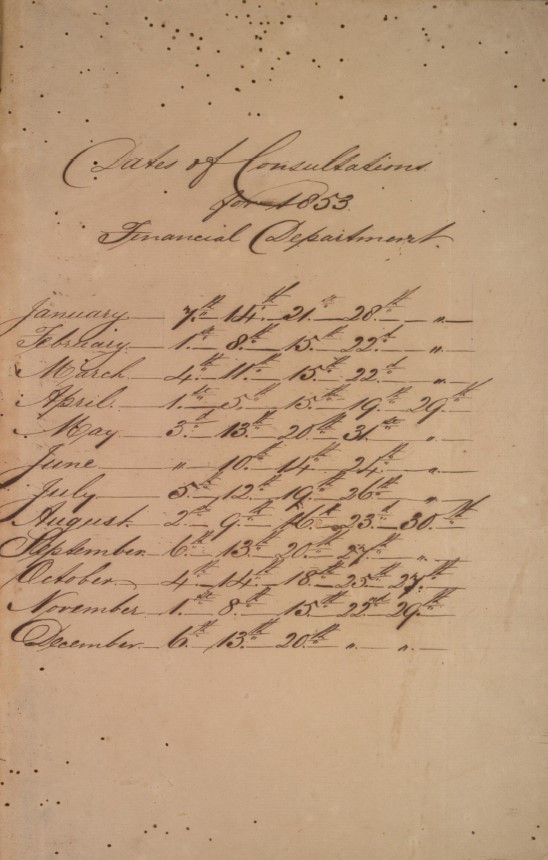 Dates of Consultations
for 1853
Financial Department.
January — 7.th — 14.th — 21.st — 28.th — „ —
February — 1.st — 8.th — 15.th — 22.d — „ —
March — 4.th — 11.th — 15.th — 22.d — „ —
April — 1.st — 5.th — 15.th — 19.th — 29.th
May — 3.d — 13.th — 20.th — 31.st — „ —
June — „ — 10.th — 14.th — 24.th — „ —
July — 5.th — 12.th — 19.th — 26.th — „ —
August — 2.d — 9.th — 16.th — 23.d — 30.th
September — 6.th — 13.th — 20.th — 27.th — „ —
October — 4.th — 14.th — 18.th — 25.th — 27.th
November — 1.st — 8.th — 15.th — 22.nd — 29.th
December — 6.th — 13.th — 20.th — „ — „ —